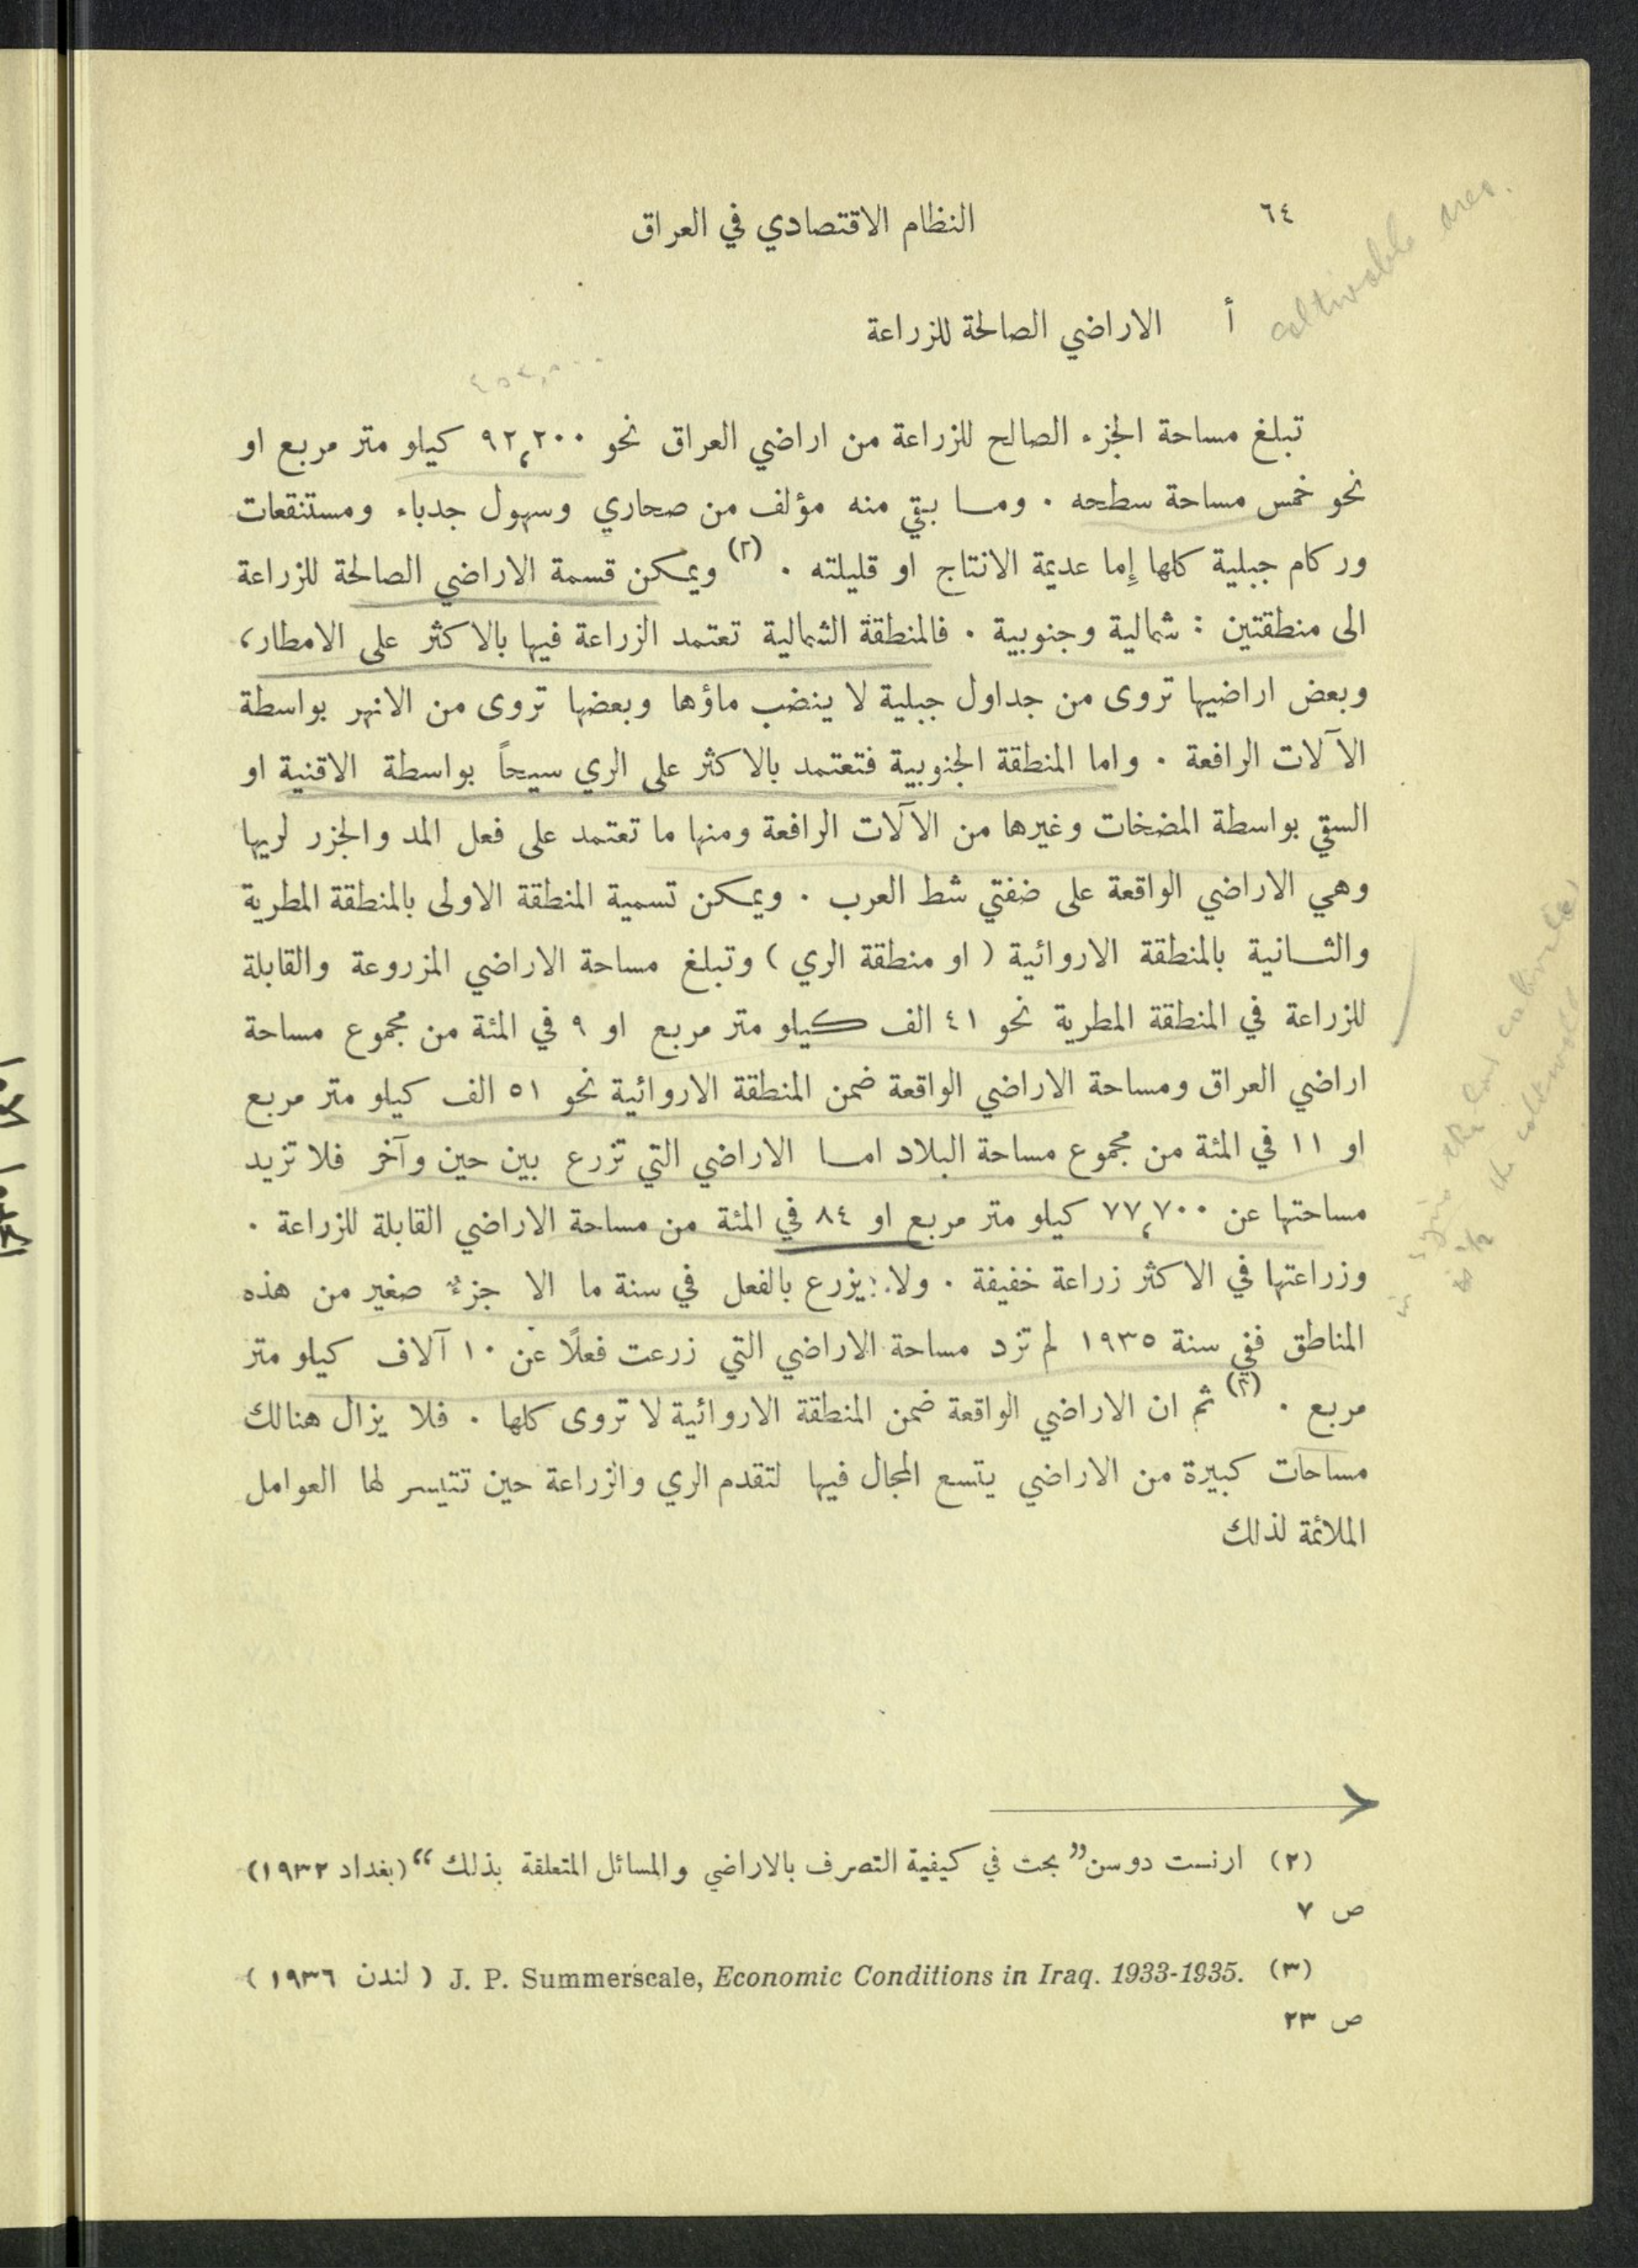 ٦٤
النظام الاقتصادي في العراق
cultivable area.
أ الاراضي الصالحة للزراعة
تبلغ مساحة الجزء الصالح للزراعة من اراضي العراق نحو ٩٢،٢٠٠ كيلو متر مربع او
نحو خمس مساحة سطحه . وما بقي منه مؤلف من صحاري وسهول جدباء ومستنقعات
وركام جبلية كلها إما عديمة الانتاج او قليلته . (٢) ويمكن قسمة الاراضي الصالحة للزراعة
الى منطقتين : شمالية وجنوبية . فالمنطقة الشمالية تعتمد الزراعة فيها بالاكثر على الامطار،
وبعض اراضيها تروى من جداول جبلية لا ينضب ماؤها وبعضها تروى من الانهر بواسطة
الآلات الرافعة . واما المنطقة الجنوبية فتعتمد بالاكثر على الري سيحاً بواسطة الاقنية او
السقي بواسطة المضخات وغيرها من الآلات الرافعة ومنها ما تعتمد على فعل المد والجزر لريها
وهي الاراضي الواقعة على ضفتي شط العرب . ويمكن تسمية المنطقة الاولى بالمنطقة المطرية
والثانية بالمنطقة الاروائية ( او منطقة الري ) وتبلغ مساحة الاراضي المزروعة والقابلة
للزراعة في المنطقة المطرية نحو ٤١ الف كيلو متر مربع او ٩ في المئة من مجموع مساحة
اراضي العراق ومساحة الاراضي الواقعة ضمن المنطقة الاروائية نحو ٥١ الف كيلو متر مربع
او ١١ في المئة من مجموع مساحة البلاد اما الاراضي التي تزرع بين حين وآخر فلا تزيد
مساحتها عن ٧٧،٧٠٠ كيلو متر مربع او ٨٤ في المئة من مساحة الاراضي القابلة للزراعة .
وزراعتها في الاكثر زراعة خفيفة . ولا يزرع بالفعل في سنة ما الا جزءٌ صغير من هذه
المناطق ففي سنة ١٩٣٥ لم تزد مساحة الاراضي التي زرعت فعلاً عن ١٠ آلاف كيلو متر
مربع . (٣) ثم ان الاراضي الواقعة ضمن المنطقة الاروائية لا تروى كلها . فلا يزال هنالك
مساحات كبيرة من الاراضي يتسع المجال فيها لتقدم الري والزراعة حين تتيسر لها العوامل
الملائمة لذلك
(٢) ارنست دوسن ”بحث في كيفية التصرف بالاراضي والمسائل المتعلقة بذلك“ (بغداد ١٩٣٢)
ص ٧
(٣) J. P. Summerscale, Economic Conditions in Iraq. 1933-1935. ( لندن ١٩٣٦ )
ص ٢٣